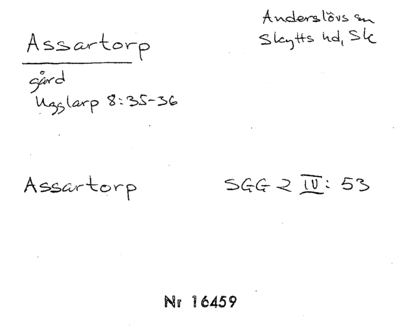 Assartorp
Anderslövs sn
Skytts hd, Sk
gård
Ugglarp 8:35-36
Assartorp
SGG 2 IV: 53
Nr 16459